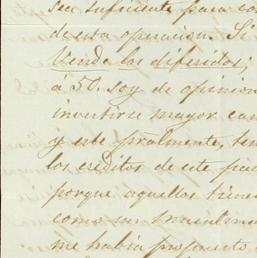 sea suficiente para co
de esta operacion. Si
Venda los diferidos;
á 50. soy de opinion
invertir mayor can
y este pralmente, ten
los creditos de este
porque aquellos tiene
como un
me habia propuesto